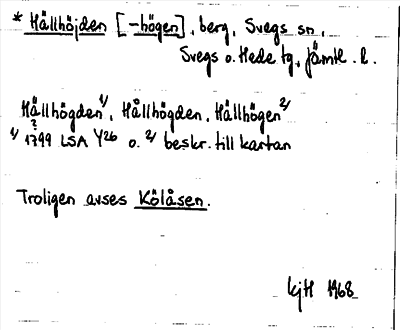 * Hållhöjden [-högen], berg, Svegs sn,
Svegs o. Hede tg, Jämtl. l.
Hållhögden 1/, Hållhögden, Hållhögen 2/
1/ 1799 LSA Y26 o. 2/ beskr. till kartan
?
Troligen avses Kölåsen.
kjH 1968